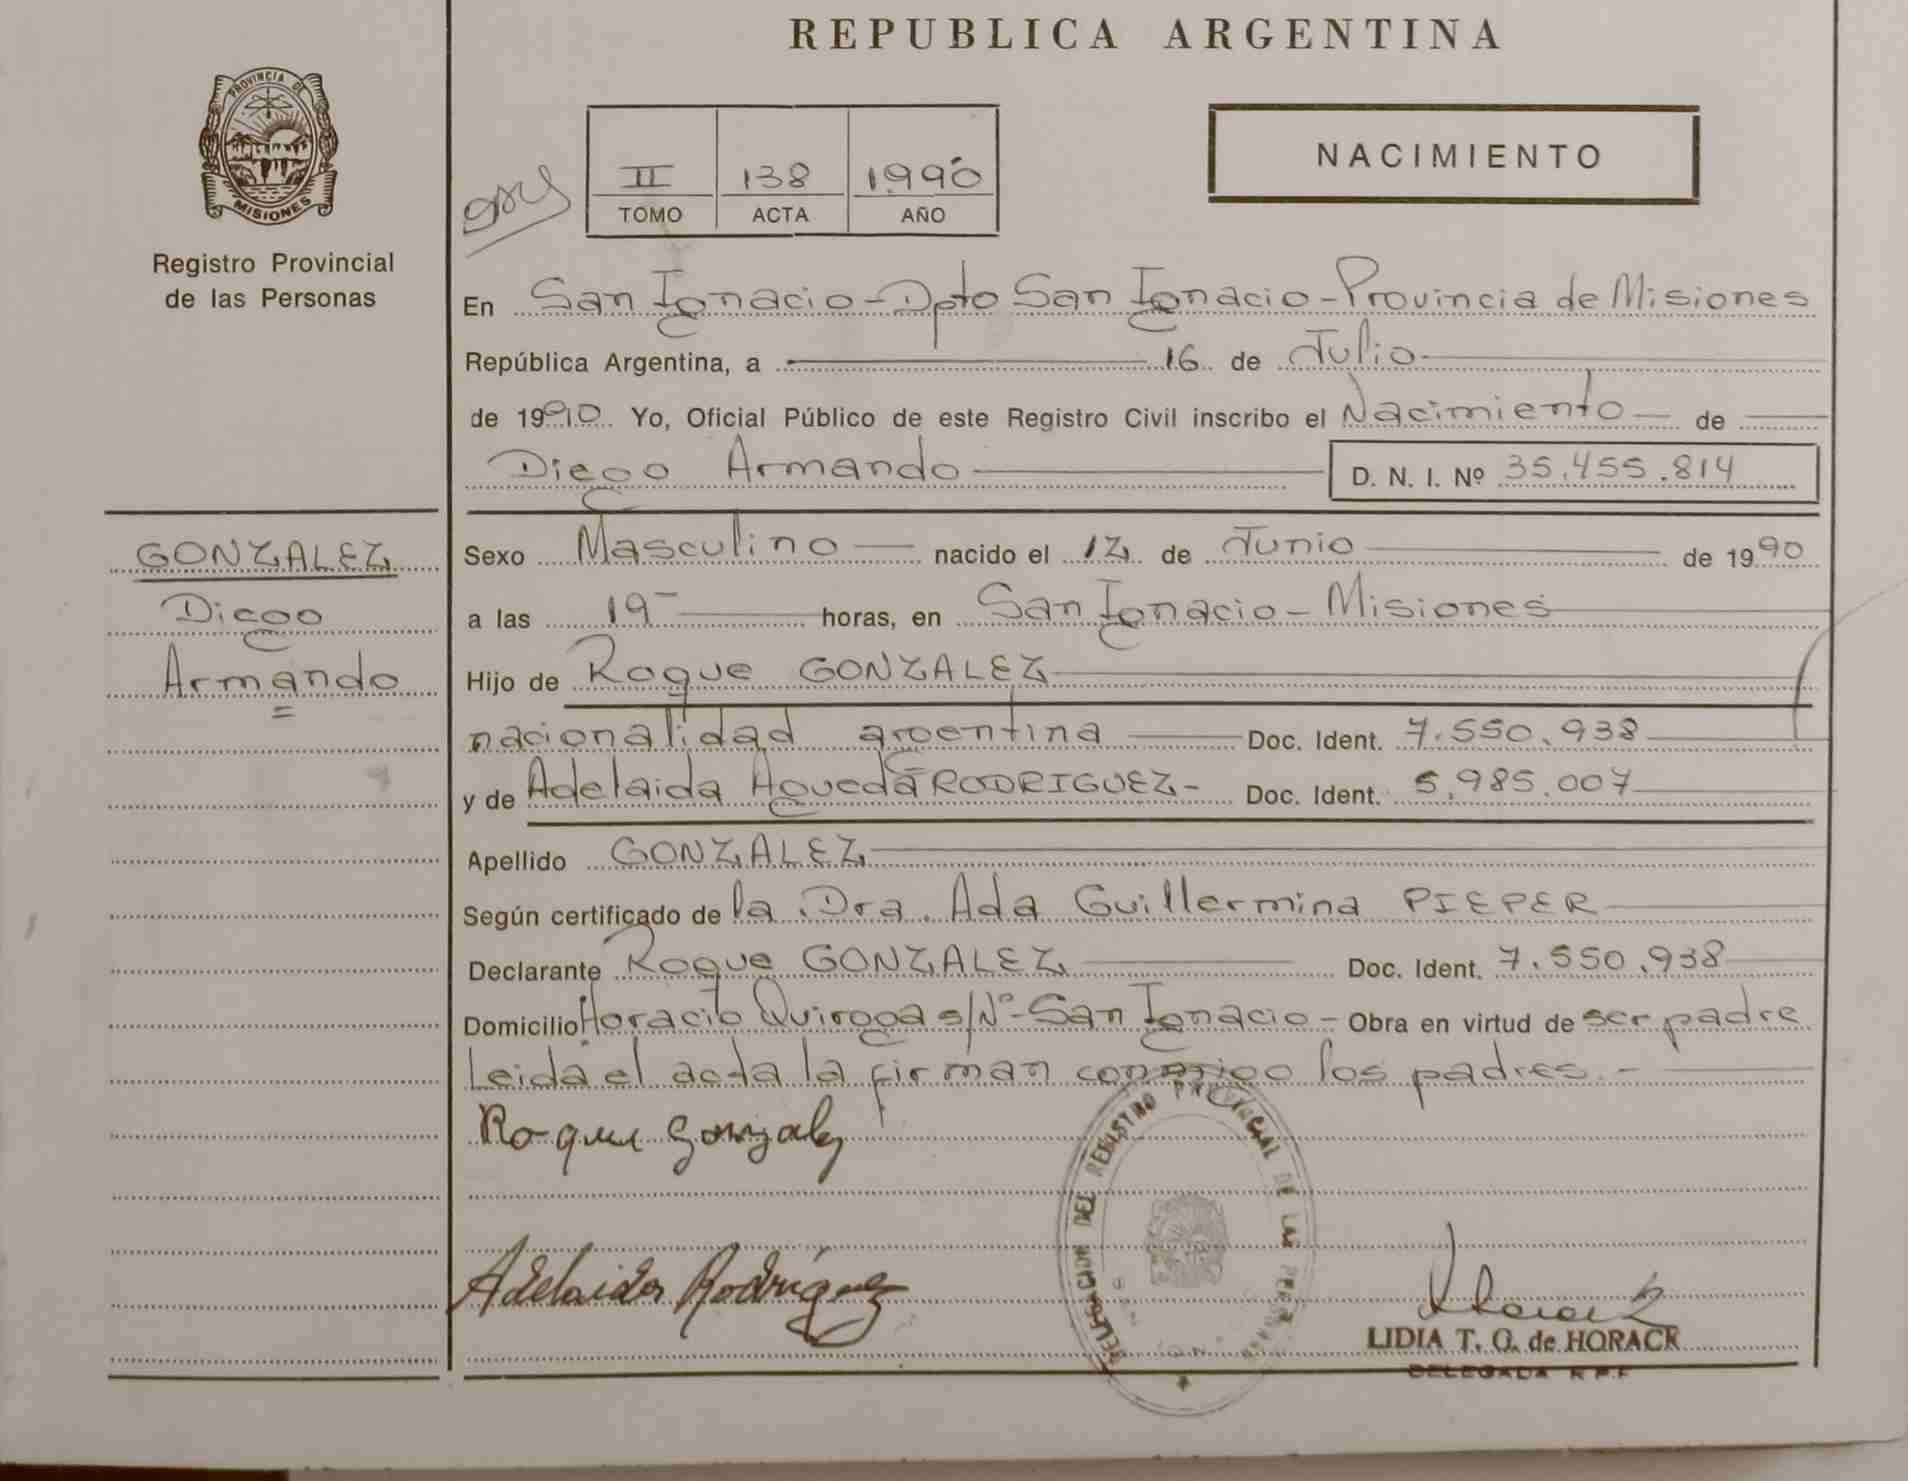 REPUBLICA ARGENTINA
PROVINCIA DE
MISIONES
Registro Provincial
de las Personas
II 138 1990
TOMO ACTA AÑO
NACIMIENTO
En San Ignacio - Dpto San Ignacio - Provincia de Misiones
República Argentina, a 16 de Julio
de 1990. Yo, Oficial Público de este Registro Civil inscribo el Nacimiento de
Diego Armando D. N. I. Nº 35.455.814
GONZALEZ
Diego
Armando
Sexo Masculino nacido el 12 de Junio de 1990
a las 19 horas, en San Ignacio - Misiones
Hijo de Roque GONZALEZ
nacionalidad argentina Doc. Ident. 7.550.938
y de Adelaida Agueda RODRIGUEZ - Doc. Ident. 5.985.007
Apellido GONZALEZ
Según certificado de la Dra. Ada Guillermina PIEPER
Declarante Roque GONZALEZ Doc. Ident. 7.550.938
Domicilio Horacio Quiroga s/Nº - San Ignacio - Obra en virtud de ser padre
Leida el acta la firman conmigo los padres. -
Roque Gonzalez
Adelaida Rodríguez
DELEGACION DEL REGISTRO PROVINCIAL DE LAS PERSONAS
LIDIA T. G. de HORACK
DELEGADA R.P.P.